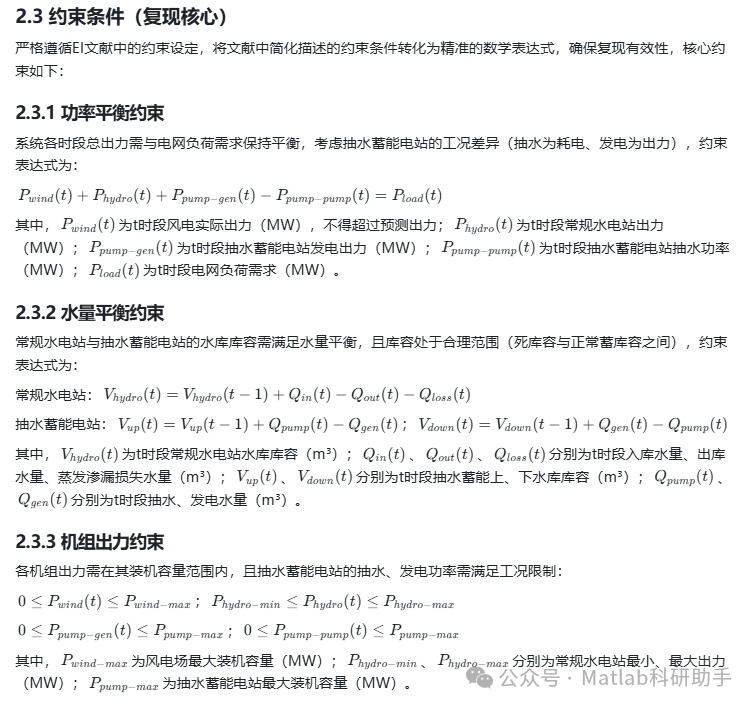 2.3 约束条件（复现核心）
严格遵循EI文献中的约束设定，将文献中简化描述的约束条件转化为精准的数学表达式，确保复现有效性，核心约
束如下：
2.3.1 功率平衡约束
系统各时段总出力需与电网负荷需求保持平衡，考虑抽水蓄能电站的工况差异（抽水为耗电、发电为出力），约束
表达式为：
P_{wind}(t) + P_{hydro}(t) + P_{pump-gen}(t) − P_{pump-pump}(t) = P_{load}(t)
其中，P_{wind}(t)为t时段风电实际出力（MW），不得超过预测出力；P_{hydro}(t)为t时段常规水电站出力
（MW）；P_{pump-gen}(t)为t时段抽水蓄能电站发电出力（MW）；P_{pump-pump}(t)为t时段抽水蓄能电站抽水功率
（MW）；P_{load}(t)为t时段电网负荷需求（MW）。
2.3.2 水量平衡约束
常规水电站与抽水蓄能电站的水库库容需满足水量平衡，且库容处于合理范围（死库容与正常蓄库容之间），约束
表达式为：
常规水电站：V_{hydro}(t) = V_{hydro}(t − 1) + Q_{in}(t) − Q_{out}(t) − Q_{loss}(t)
抽水蓄能电站：V_{up}(t) = V_{up}(t − 1) + Q_{pump}(t) − Q_{gen}(t)；V_{down}(t) = V_{down}(t − 1) + Q_{gen}(t) − Q_{pump}(t)
其中，V_{hydro}(t)为t时段常规水电站水库库容（m³）；Q_{in}(t)、Q_{out}(t)、Q_{loss}(t)分别为t时段入库水量、出库
水量、蒸发渗漏损失水量（m³）；V_{up}(t)、V_{down}(t)分别为t时段抽水蓄能上、下水库库容（m³）；Q_{pump}(t)、
Q_{gen}(t)分别为t时段抽水、发电水量（m³）。
2.3.3 机组出力约束
各机组出力需在其装机容量范围内，且抽水蓄能电站的抽水、发电功率需满足工况限制：
0 ≤ P_{wind}(t) ≤ P_{wind-max}；P_{hydro-min} ≤ P_{hydro}(t) ≤ P_{hydro-max}
0 ≤ P_{pump-gen}(t) ≤ P_{pump-max}；0 ≤ P_{pump-pump}(t) ≤ P_{pump-max}
其中，P_{wind-max}为风电场最大装机容量（MW）；P_{hydro-min}、P_{hydro-max}分别为常规水电站最小、最大出力
（MW）；P_{pump-max}为抽水蓄能电站最大装机容量（MW）。
公众号 · Matlab科研助手